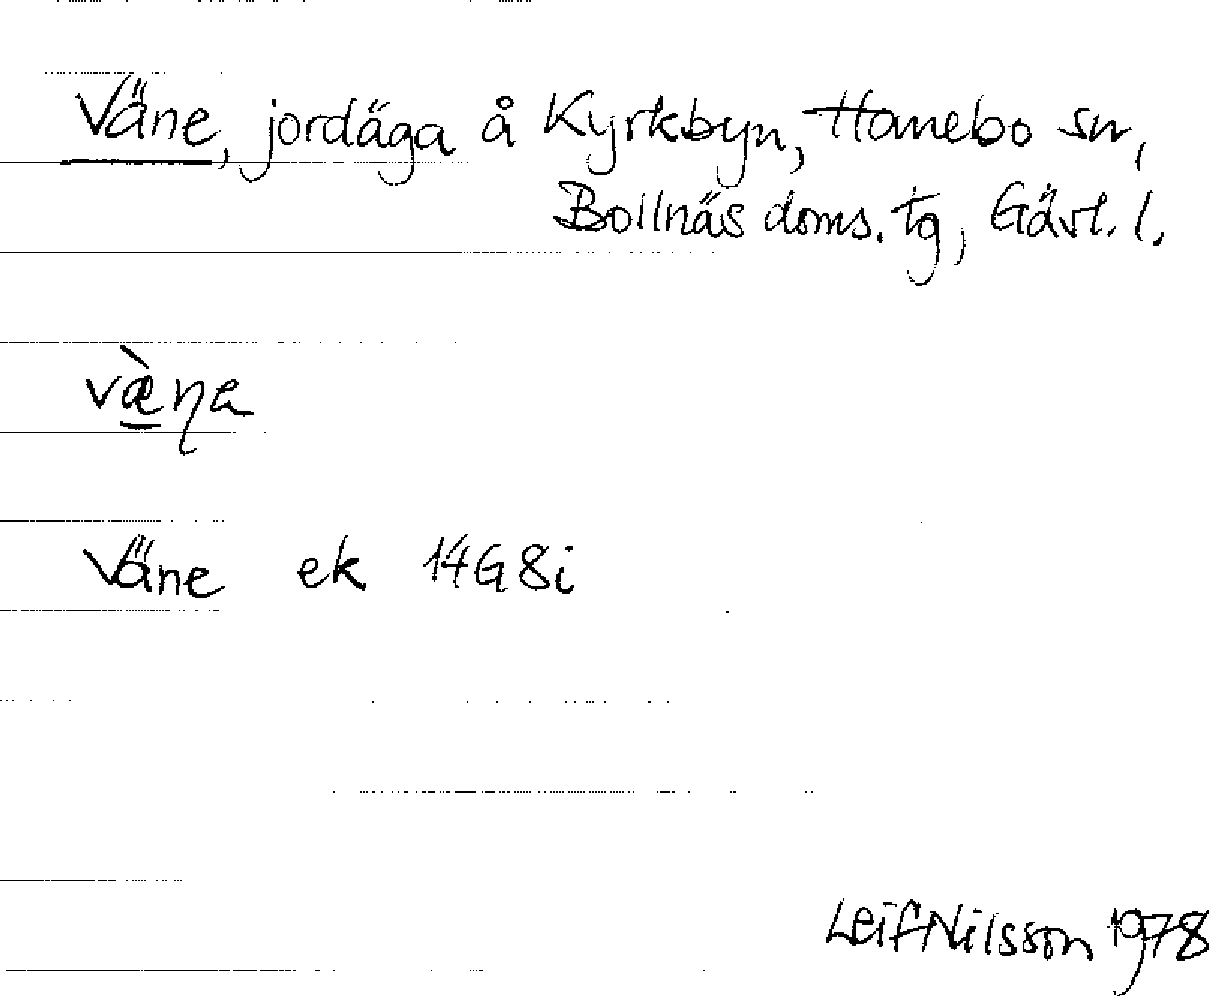 Väne, jordäga å Kyrkbyn, Hanebo sn,
Bollnäs doms. tg, Gävl. l.
væ̀na
Väne ek 14G8i
Leif Nilsson 1978